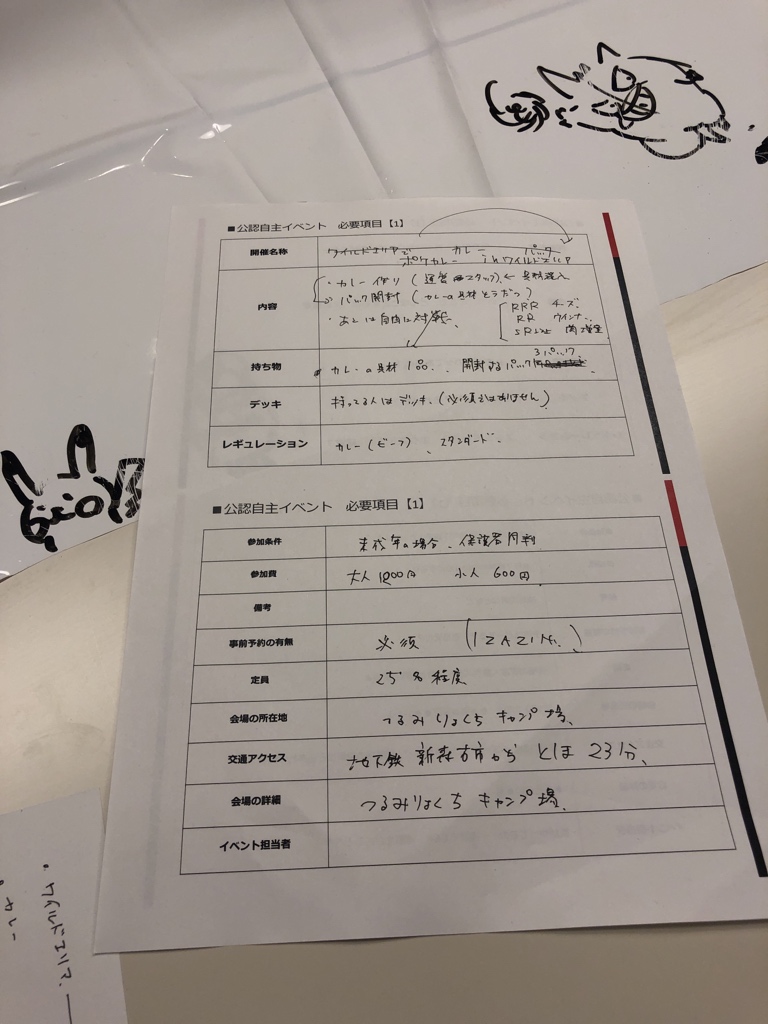 ■公認自主イベント　必要項目【1】
開催名称
ワイルドエリアで　カレー　パック
ポケカレー　inワイルドエリア
内容
・カレー作り (運営スタッフ) ← 具材混入
・パック開封 (カレーの具材とうだつ)
・あとは自由に対戦、
RRR チーズ
RR ウインナー
SR以上 肉増量
持ち物
カレーの具材1品、 開封するパック 3パック、
デッキ
持ってる人はデッキ、(必須ではありません)
レギュレーション
カレー(ビーフ)、スタンダード、
■公認自主イベント　必要項目【1】
参加条件
未成年の場合、保護者同判
参加費
大人1200円　小人 600円
備考
事前予約の有無
必須
定員
25名程度
会場の所在地
つるみりょくち キャンプ場、
交通アクセス
地下鉄 新森古市から とほ 23分、
会場の詳細
つるみりょくち キャンプ場、
イベント担当者
・ワイルドエリア
・カレー